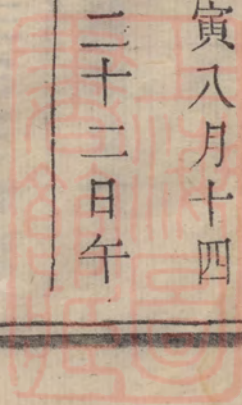 寅八月十四
二十二日午